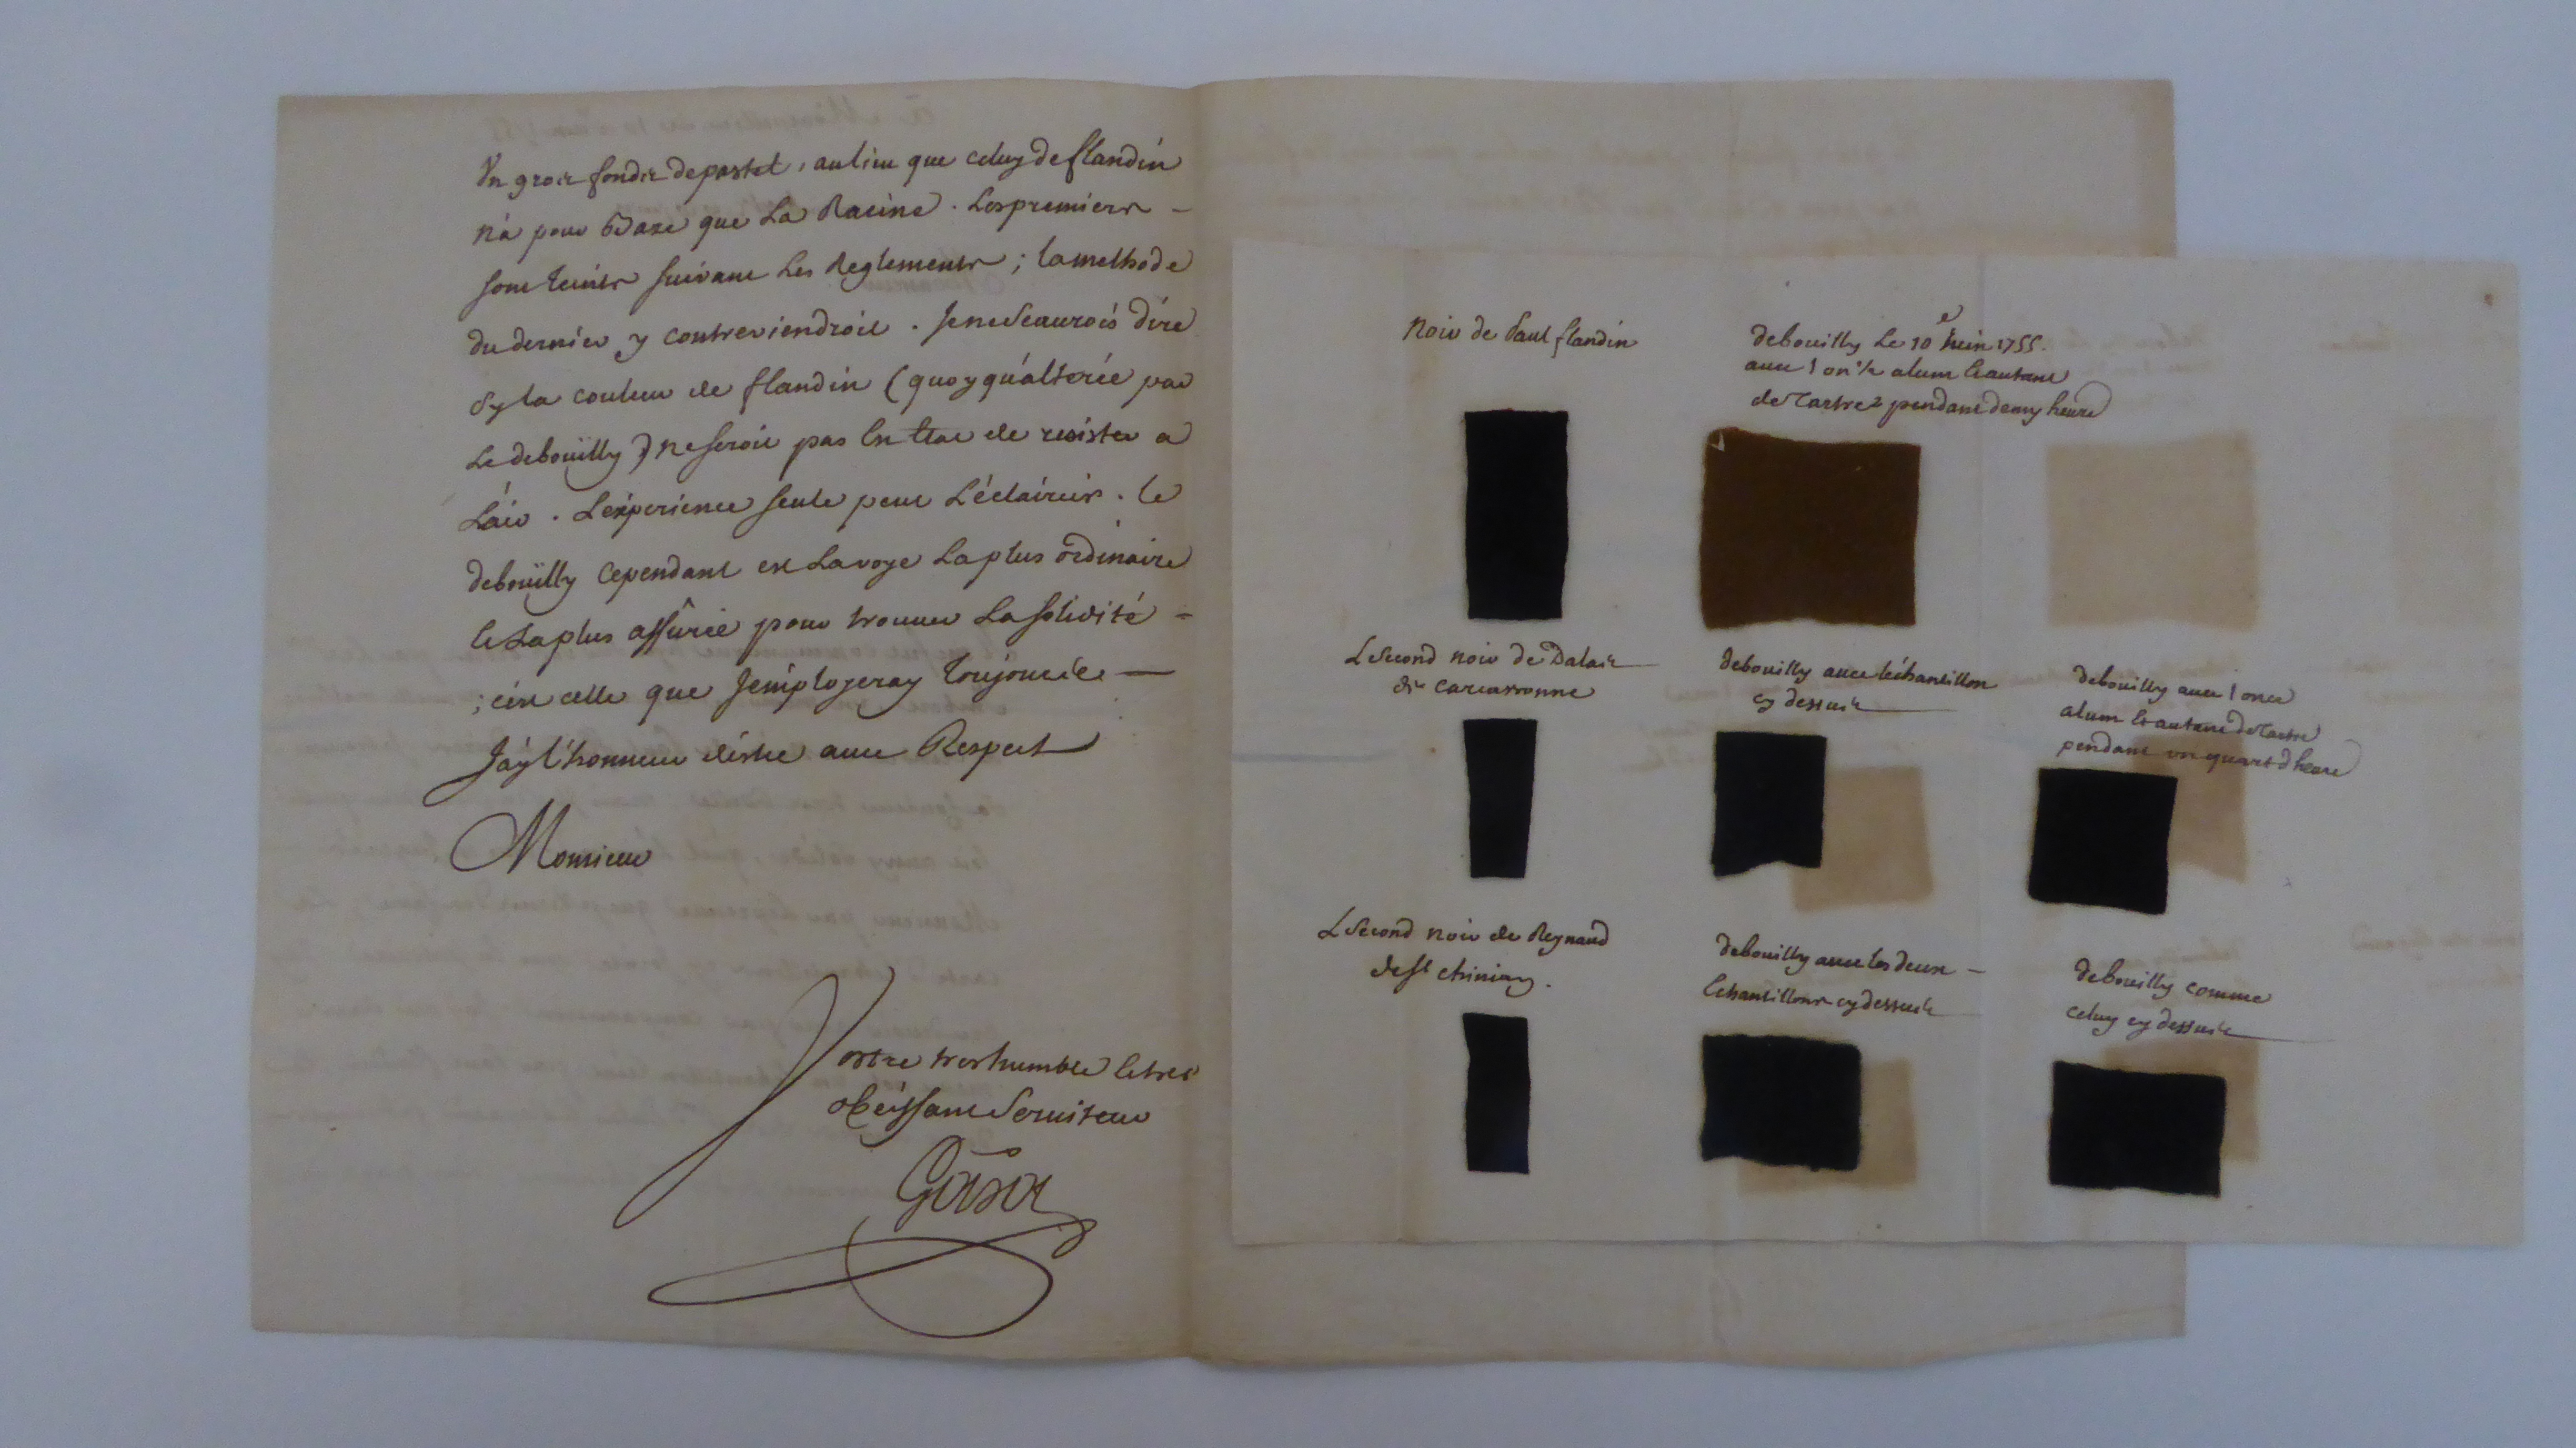 Un gros fondz de pastel, au lieu que celuy de flandin
n'a pour Baze que La Racine. Les premiers
sont teints suivant Les Reglements; la methode
du dernier y contreviendroit. Je ne Scaurois dire
Sy la couleur de flandin (quoy qu'alterée par
Le debouïlly) ne seroit pas En Etat de resister a
L'air. L'experience seule peut L'éclaircir. Le
debouïlly cependant est La voye La plus ordinaire
et La plus assurée pour trouver La solidité
; c'est celle que J'employeray toujours
J'ay l'honneur d'estre avec Respect
Monsieur
Vostre tres humble et tres
obéissant Serviteur
Noir de Paul flandin
debouilly Le 10e Juin 1755.
avec 1 on ½ alum et autant
de Tartre pendant demy heure
Le Second noir de Dalais
de Carcassonne
debouilly avec l'échantillon
cy dessus
debouilly avec 1 once
alum et autant de Tartre
pendant un quart d'heure
Le Second noir de Reynaud
de St chinian.
debouilly avec les deux
Echantillons cy dessus
debouilly comme
celuy cy dessus